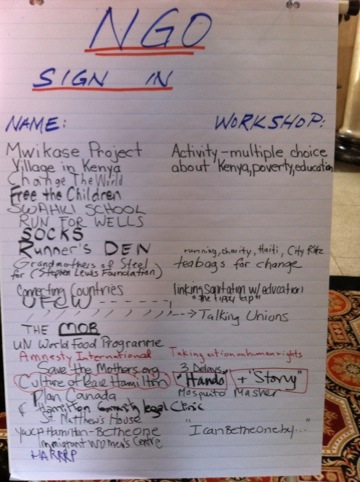 NGO
SIGN IN
NAME: WORKSHOP:
Mwikase Project Activity - multiple choice
Village in Kenya about Kenya, poverty, education
Change The World
Free the Children
SWAHILI SCHOOL
RUN FOR WELLS
SOCKS
Runner's DEN running, charity, Haiti, City Kidz
Grandmothers of Steel teabags for change
for (Stephen Lewis Foundation)
Connecting Countries linking sanitation w/ education
"the tippy tap"
UFCW Talking Unions
THE MOB
UN World Food Programme
Amnesty International Taking action on human rights
Save the Mothers.org 3 Delays
Culture of Peace Hamilton "Hands" + "Story"
Plan Canada Mosquito Masher
Hamilton Community Legal Clinic
St. Matthew's House
YWCA Hamilton - Be the One "I can Be the one by..."
Immigrant Women's Centre
HARRRP